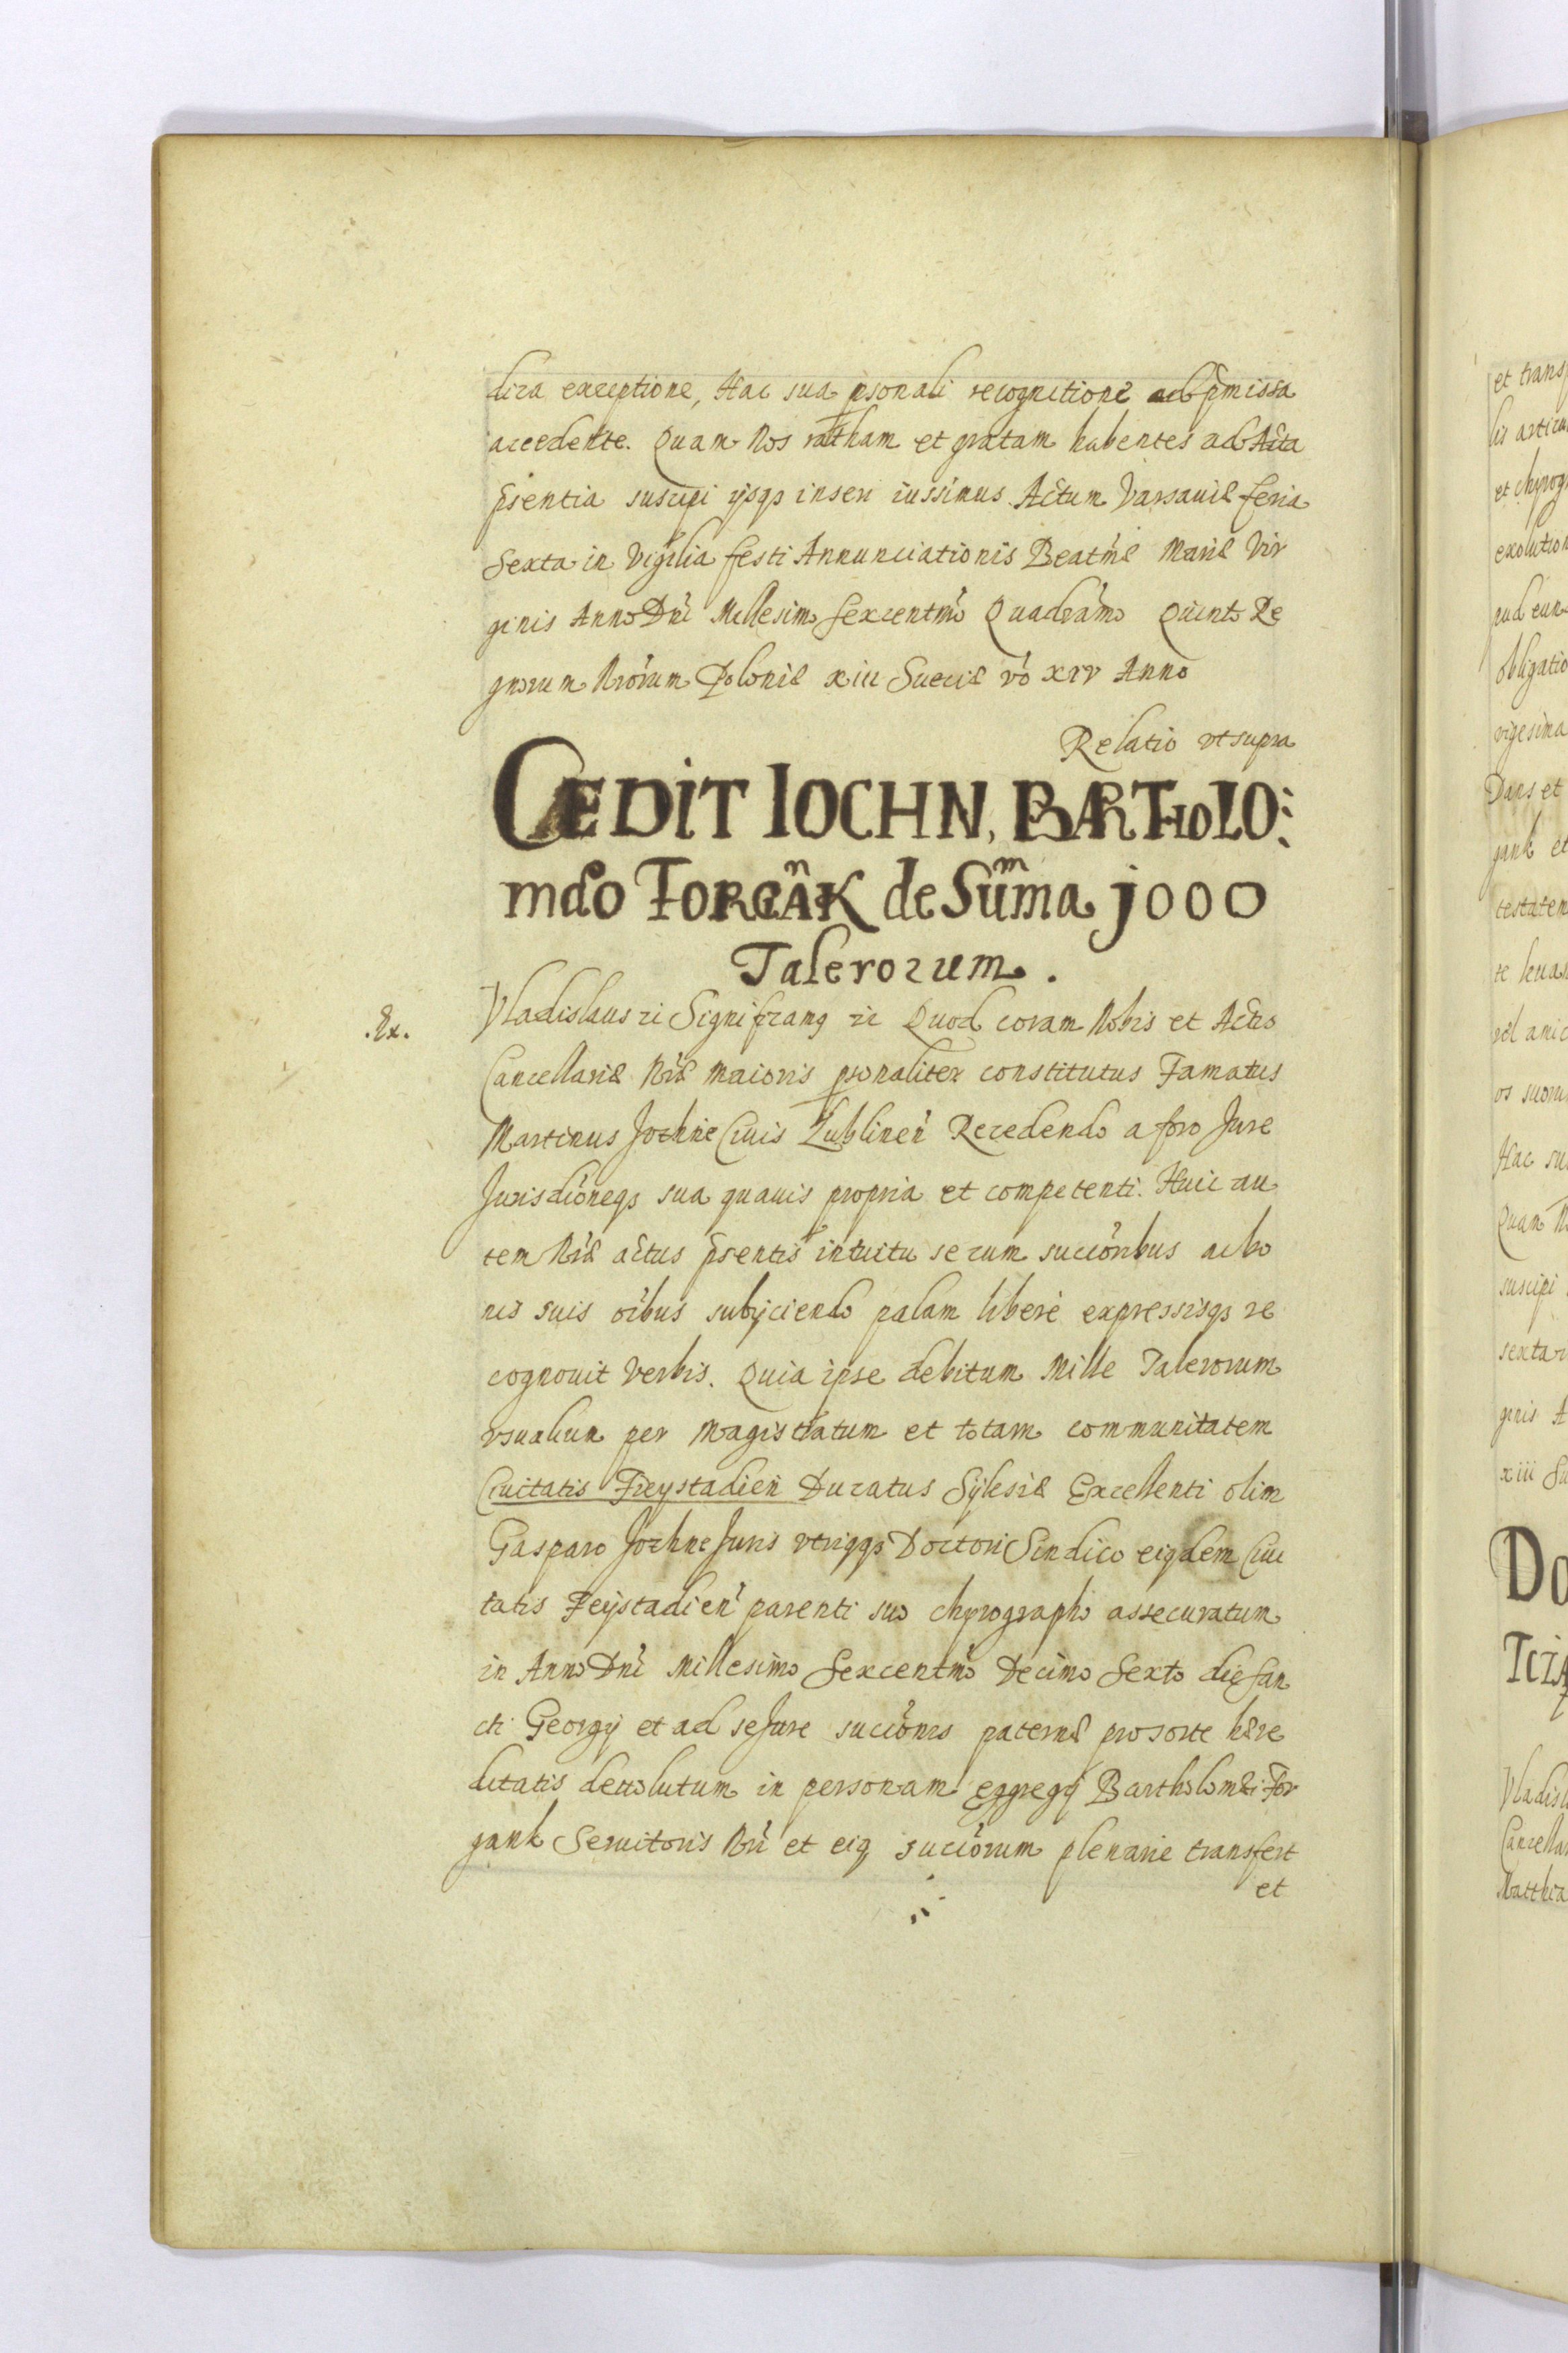 dica exceptione, Hac sua psonali recognitione ad pmissa
accedente. Quam Nos ratham et gratam habentes ad Acta
psentia suscipi ijsqs inseri iussimus. Actum Varsauiæ feria
Sexta in Vigilia festi Annunciationis Beatmæ Mariæ Vir
ginis Anno Dni Millesimo Sexcentmo Quadramo Quinto Re
gnorum Nrorum Poloniæ xiii Sueciæ vo xiv Anno
Relatio vt supra
CÆDIT IOCHN, BARTHOLO:
mæo FORGANK de Summa 1000
Talerorum.
.Ex.
Vladislaus zc Significamq zc Quod coram Nobis et Actis
Cancellariæ Nræ Maioris psonaliter constitutus Famatus
Martinus Jochne Ciuis Lublinen Recedendo a foro Jure
Jurisdioneqs sua quauis propria et competenti. Huic au
tem Nræ actus psentis intuitu se cum succoribus ac bo
nis suis oibus subijciendo palam libere expressisqs re
cognouit Verbis. Quia ipse debitum Mille Talerorum
vsualium per Magistratum et totam communitatem
Ciuitatis Freystadien Ducatus Sylesiæ Excellenti olim
Gasparo Jochne Juris vtriqqs Doctori Sindico eiqdem Ciui
tatis Feystadien parenti suo chyrographo assecuratum
in Anno Dni Millesimo Sexcentmo Decimo Sexto die San
cti Georgij et ad se Jure succionis paternæ pro sorte hære
ditatis deuolutum in personam Eggregij Bartholomæi For
gank Seruitoris Nri et eiq succiorum plenarie transfert
et
et trans
lis artic
et chyrog
exolution
pud eun
obligatio
vigesima
Dans et
gank et
testatem
te leua
vel amic
os suoru
Hac su
Quam N
suscipi
sexta i
ginis A
xiii Su
DO
Vladisl
Cancellar
Matthia